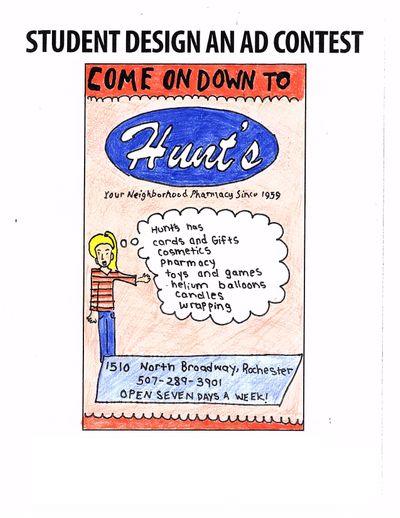 STUDENT DESIGN AN AD CONTEST
COME ON DOWN TO
Hunt's
Your Neighborhood Pharmacy Since 1959
Hunt's has
cards and Gifts
cosmetics
pharmacy
toys and games
helium balloons
candles
wrapping
1510 North Broadway, Rochester
507-289-3901
OPEN SEVEN DAYS A WEEK!